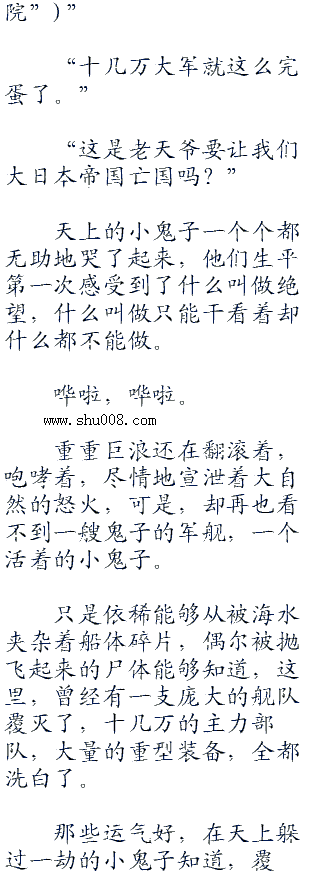 院”)”
“十几万大军就这么完
蛋了。”
“这是老天爷要让我们
大日本帝国亡国吗？”
天上的小鬼子一个个都
无助地哭了起来，他们生平
第一次感受到了什么叫做绝
望，什么叫做只能干看着却
什么都不能做。
哗啦，哗啦。
www.shu008.com
重重巨浪还在翻滚着，
咆哮着，尽情地宣泄着大自
然的怒火，可是，却再也看
不到一艘鬼子的军舰，一个
活着的小鬼子。
只是依稀能够从被海水
夹杂着船体碎片，偶尔被抛
飞起来的尸体能够知道，这
里，曾经有一支庞大的舰队
覆灭了，十几万的主力部
队，大量的重型装备，全都
洗白了。
那些运气好，在天上躲
过一劫的小鬼子知道，覆